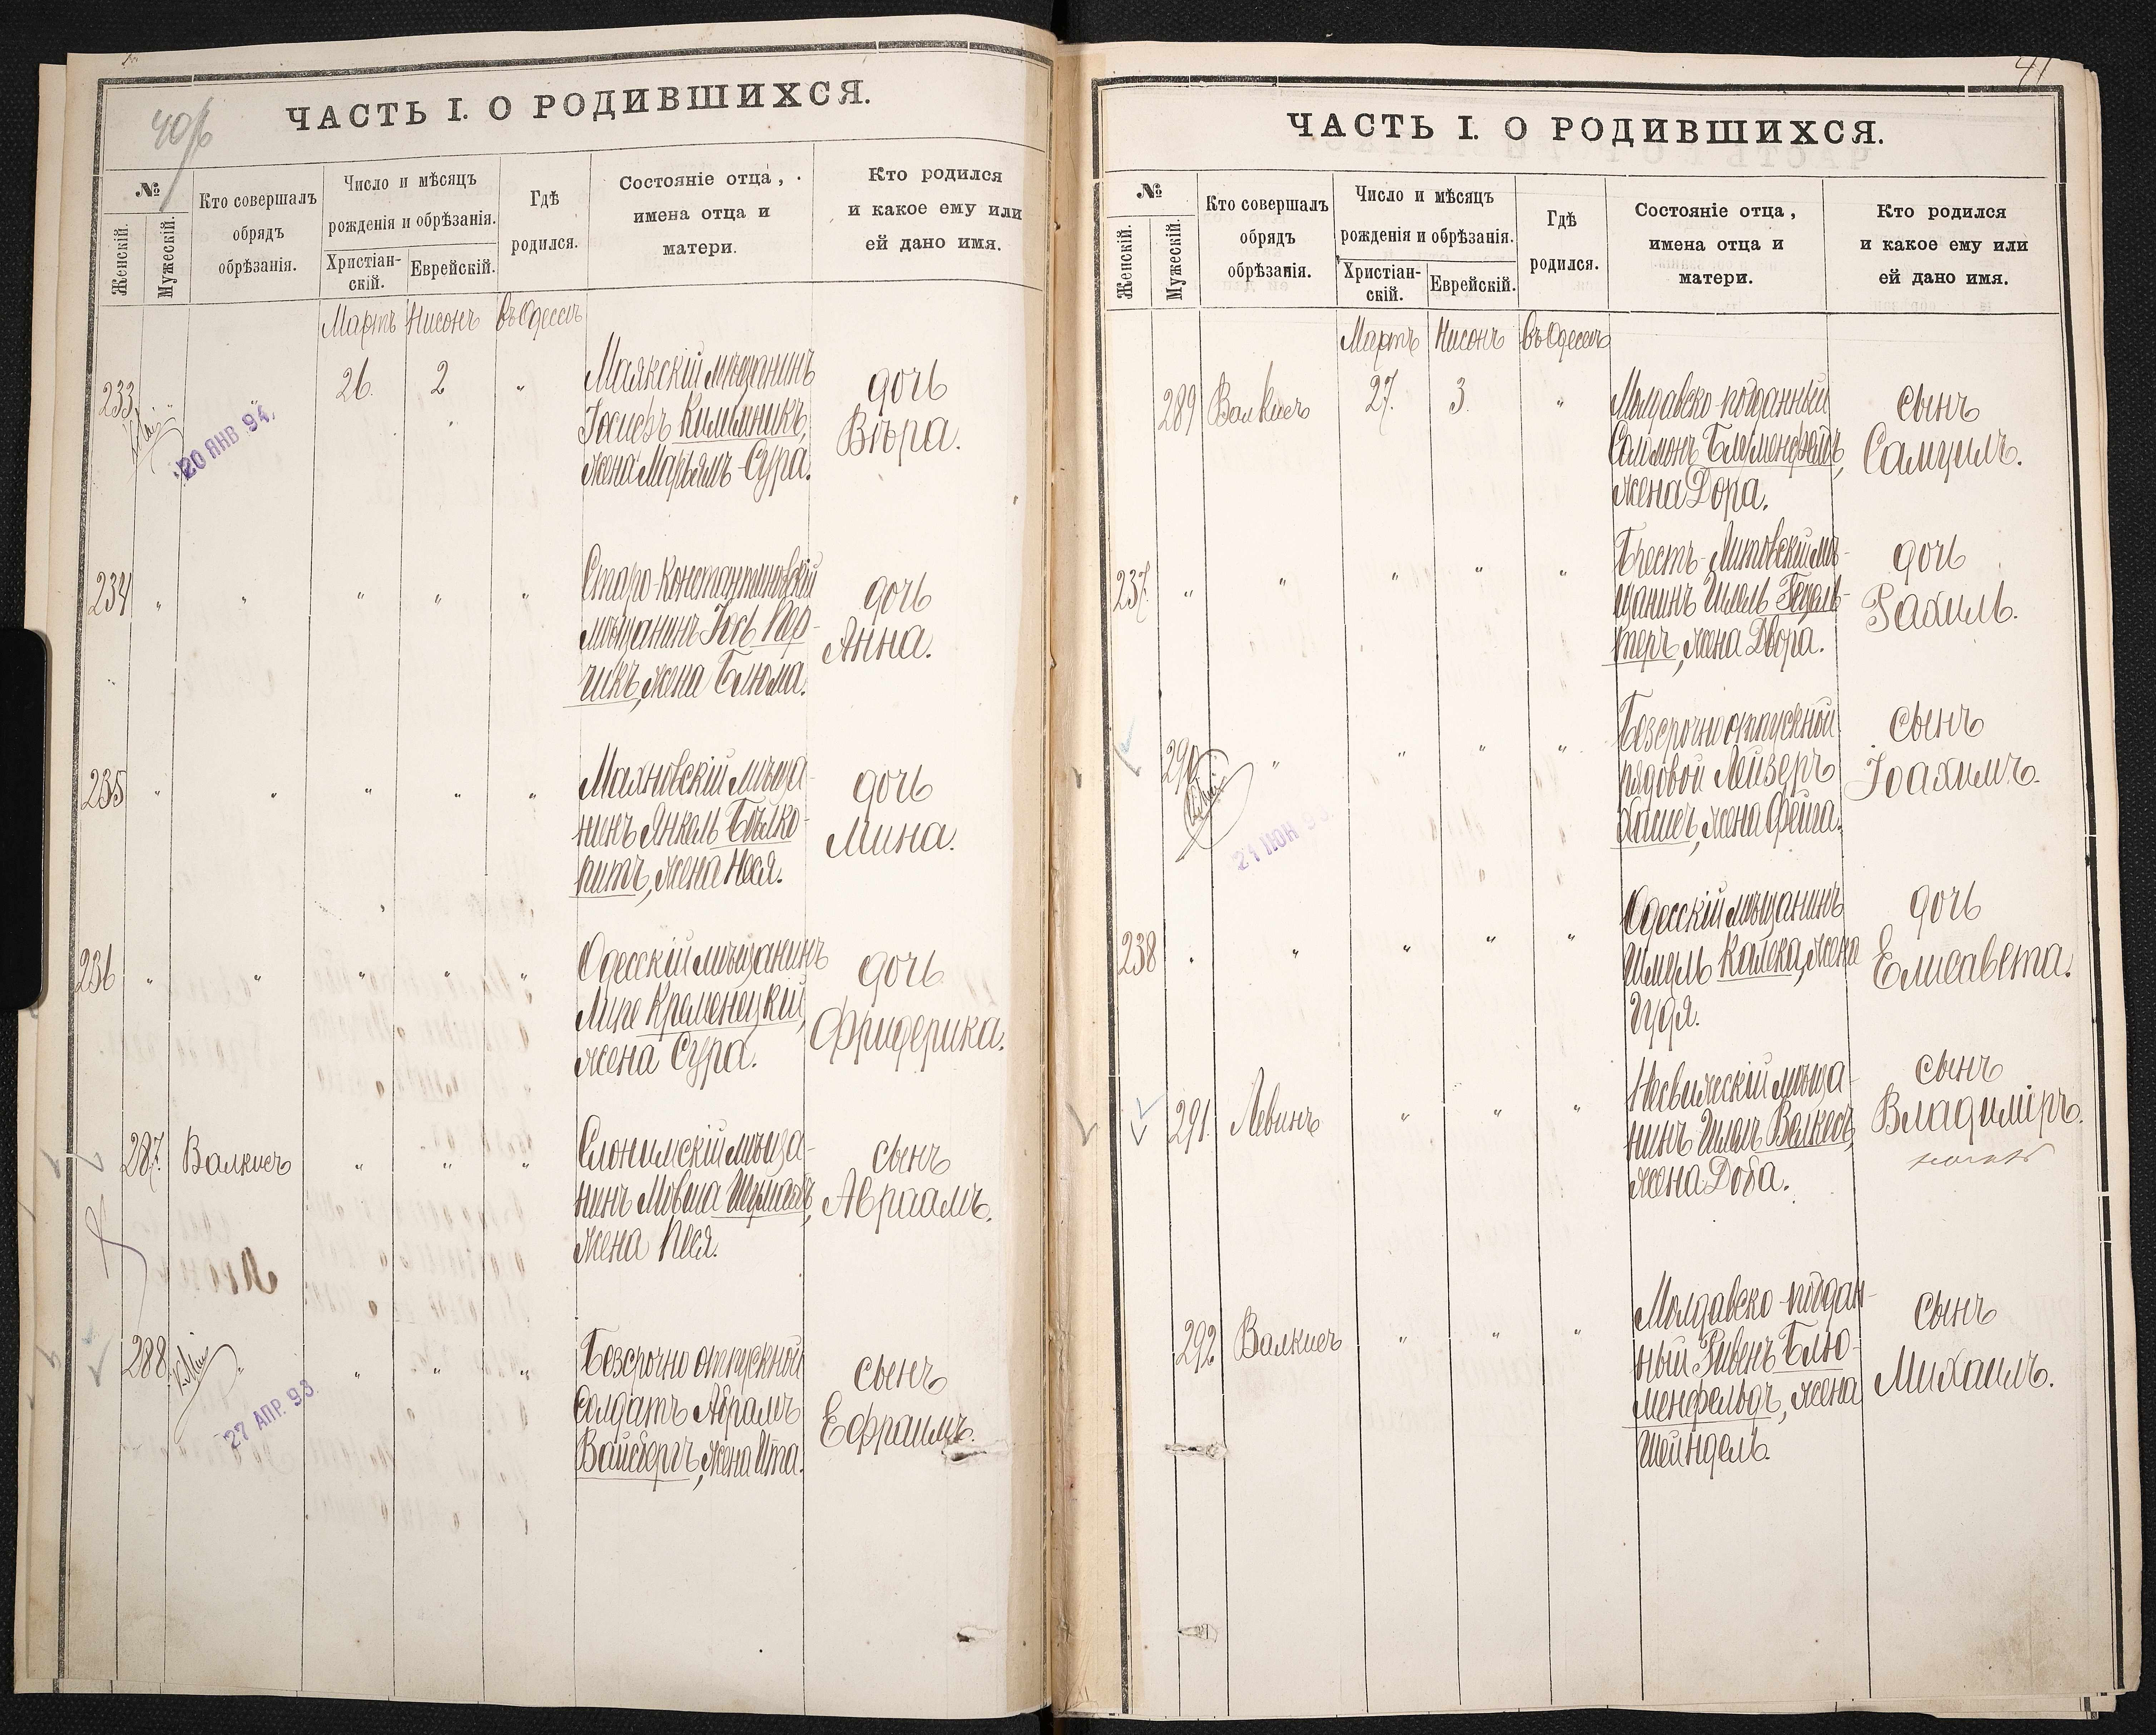 40/б
ЧАСТЬ I. О РОДИВШИХСЯ.
№
Женскій.
Мужескій.
Кто совершалъ
обрядъ
обрѣзанія.
Число и мѣсяцъ
рожденія и обрѣзанія.
Христіан-
скій.
Еврейскій.
Гдѣ
родился.
Состояніе отца,
имена отца и
матери.
Кто родился
и какое ему или
ей дано имя.
Мартъ Нисонъ въ Одессѣ
233 " 26. 2 "
Маякскій мѣщанинъ
Іосифъ Килимникъ,
жена Марьямъ-Сура.
дочь
Вѣра.
20 ЯНВ 94.
234 " " " " "
Старо-Константиновскій
мѣщанинъ Іось Пер-
чикъ, жена Блюма.
дочь
Анна.
235 " " " " "
Махновскій мѣща-
нинъ Янкель Бѣлко-
питъ, жена Неся.
дочь
Мина.
236 " " " " "
Одесскій мѣщанинъ
Кременецкій,
жена Сура.
дочь
Фридерика.
287. Валкисъ " " "
Слонимскій мѣща-
нинъ Мовша
жена Песя.
сынъ
Авраамъ.
288 " " " "
Безсрочно отпускной
солдатъ Абрамъ
Вайсбергъ, жена Ита.
сынъ
Ефраимъ.
27 АПР. 93.
41
ЧАСТЬ I. О РОДИВШИХСЯ.
№
Женскій.
Мужескій.
Кто совершалъ
обрядъ
обрѣзанія.
Число и мѣсяцъ
рожденія и обрѣзанія.
Христіан-
скій.
Еврейскій.
Гдѣ
родился.
Состояніе отца,
имена отца и
матери.
Кто родился
и какое ему или
ей дано имя.
Мартъ Нисонъ въ Одессѣ
289 Валкисъ 27. 3. "
Молдавско-подданный
Соломонъ Блюменфельдъ,
жена Дора.
сынъ
Самуилъ.
237. " " " " "
Брестъ-Литовскій мѣ-
щанинъ
жена Двора.
дочь
Рахиль.
290 " " " "
Безсрочно отпускной
рядовой Лейзеръ
жена Фейга.
сынъ
Іоахимъ.
238 " " " " "
Одесскій мѣщанинъ
Шмуль Калека, жена
Гудя.
дочь
Елисавета.
291. Левинъ " " "
Несвижскій мѣща-
нинъ
жена Доба.
сынъ
Владиміръ.
292 Валкисъ " " "
Молдавско-поддан-
ный Рувенъ Блю-
менфельдъ, жена
Шейндель.
сынъ
Михаилъ.